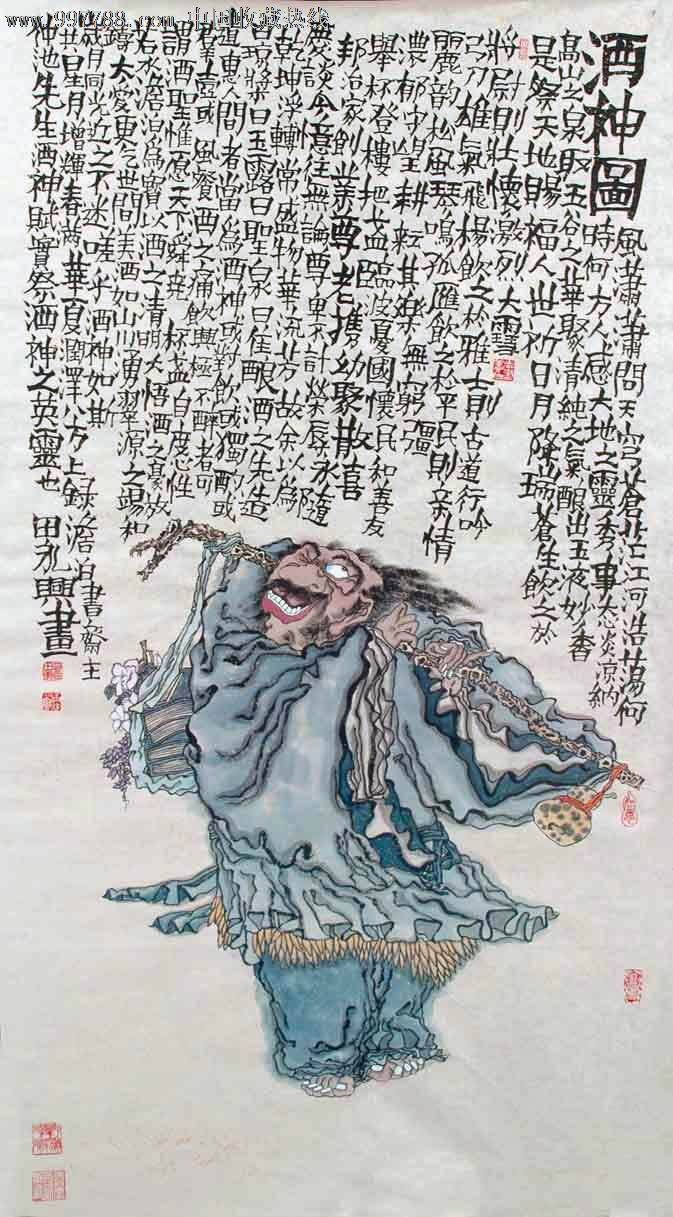 www.997788.com 中国收藏热线
酒神圖
風瀟瀟問天穹蒼茫江河浩蕩何
時何方人感大地之靈秀事态炎凉納
高山之泉取五谷之華聚清純之氣醸出玉液妙香
是祭天地賜福人世祈日月降瑞蒼生飲之於
將尉則壯懷激烈大雪
弓刀雄氣飛揚飲之於雅士則古道行吟
麗韵松風琴鳴孤雁飲之於平民則亲情
濃郁守望耕耘其樂無窮疆
舉杯登樓把盏臨波憂國懷民和善友
邦治家創業尊老携幼聚散喜
慶談今憶往無論尊卑不計榮辱永随
乾坤浮轉常盛物華流芳故余以為
瓊漿曰玉露曰聖泉曰佳酿酒之先造
道惠人間者當為酒神或對飲或獨酌或
或風餐酒之痛飲興極不醉者可
謂酒聖惟愿天下舜堯杯盏自度心性
若水澹泊為寶以酒之清明大悟酒之豪放
鑄大愛更乞世間美酒如山川湧翠源之竭和
歲月同光近之不迷嗟乎酒神如斯
共星月增輝春萬華夏潤澤八方上録澹泊書齋主
仲池先生酒神賦實祭酒神之英靈也 田永興畫